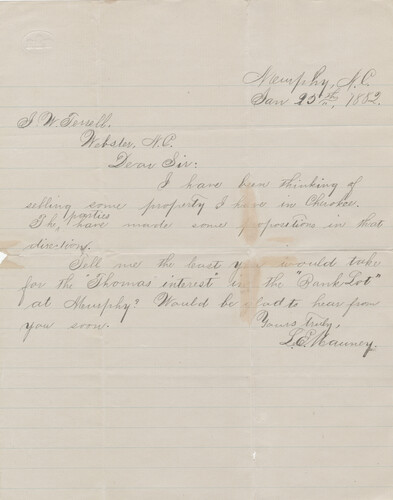 Murphy, N.C.
Jan 25th, 1882.
J. W. Terrell.
Webster, N.C.
Dear Sir:
I have been thinking of
selling some property I have in Cherokee.
parties
Th, have made some propositions in that
direction.
Tell me the least you would take
for the "Thomas interest" in the "Bank Lot"
at Murphy? Would be glad to hear from
you soon.
Yours Truly,
L. E. Mauney.